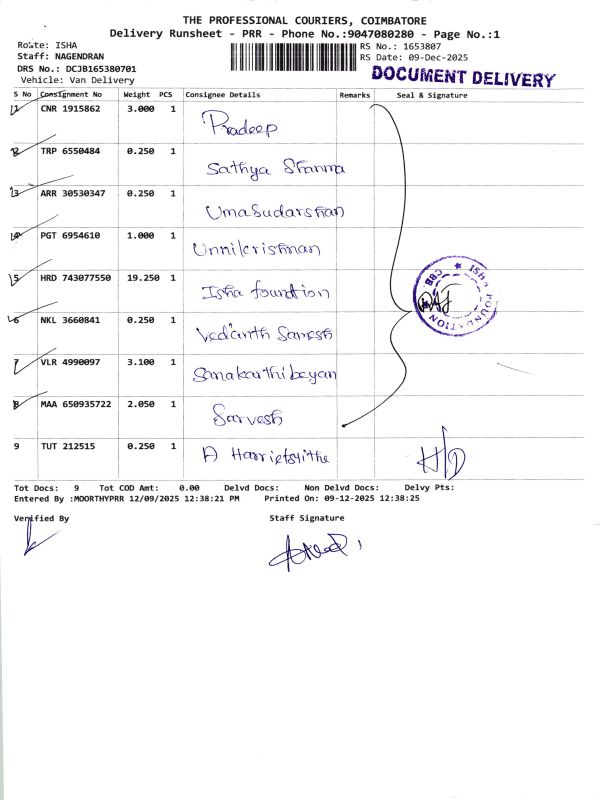 THE PROFESSIONAL COURIERS, COIMBATORE
Delivery Runsheet - PRR - Phone No.:9047080280 - Page No.:1
Route: ISHA
Staff: NAGENDRAN
DRS No.: DCJB165380701
Vehicle: Van Delivery
RS No.: 1653807
RS Date: 09-Dec-2025
DOCUMENT DELIVERY
S No Consignment No Weight PCS Consignee Details Remarks Seal & Signature
1 CNR 1915862 3.000 1 Pradeep
2 TRP 6550484 0.250 1 Sathya Sharma
3 ARR 30530347 0.250 1 UmaSudarshan
4 PGT 6954610 1.000 1 Unnikrishnan
5 HRD 743077550 19.250 1 Isha foundtion
6 NKL 3660841 0.250 1 Vedanth
7 VLR 4990097 3.100 1
8 MAA 650935722 2.050 1 Sarvesh
9 TUT 212515 0.250 1 A
ISHA FOUNDATION CBE
Tot Docs: 9 Tot COD Amt: 0.00 Delvd Docs: Non Delvd Docs: Delvy Pts:
Entered By :MOORTHYPRR 12/09/2025 12:38:21 PM Printed On: 09-12-2025 12:38:25
Verified By Staff Signature